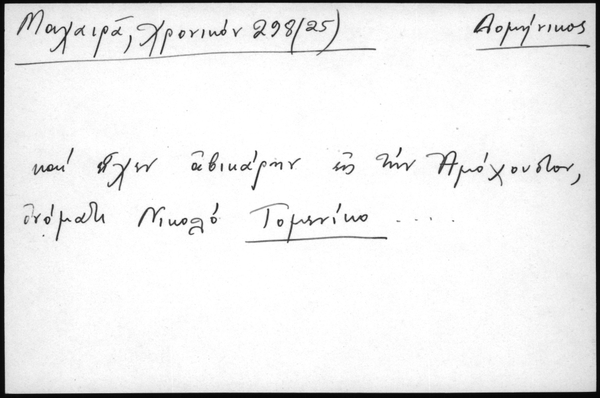 Μαχαιρά, χρονικόν 298(25) Δομήνικος
καί εἶχεν ἀβικάρην εἰς τήν Ἀμόχουστον,
ὀνόματι Νικολό Τομενίκο ....